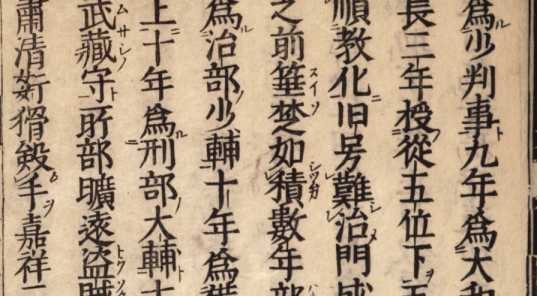 爲少判事九年爲大和
長三年授從五位下
順教化旧号難治門
之前箠楚如積數年部
爲治部少輔十年爲
上十年爲刑部大輔
武藏守所部曠遠盗賊
肅清姧猾斂手嘉祥